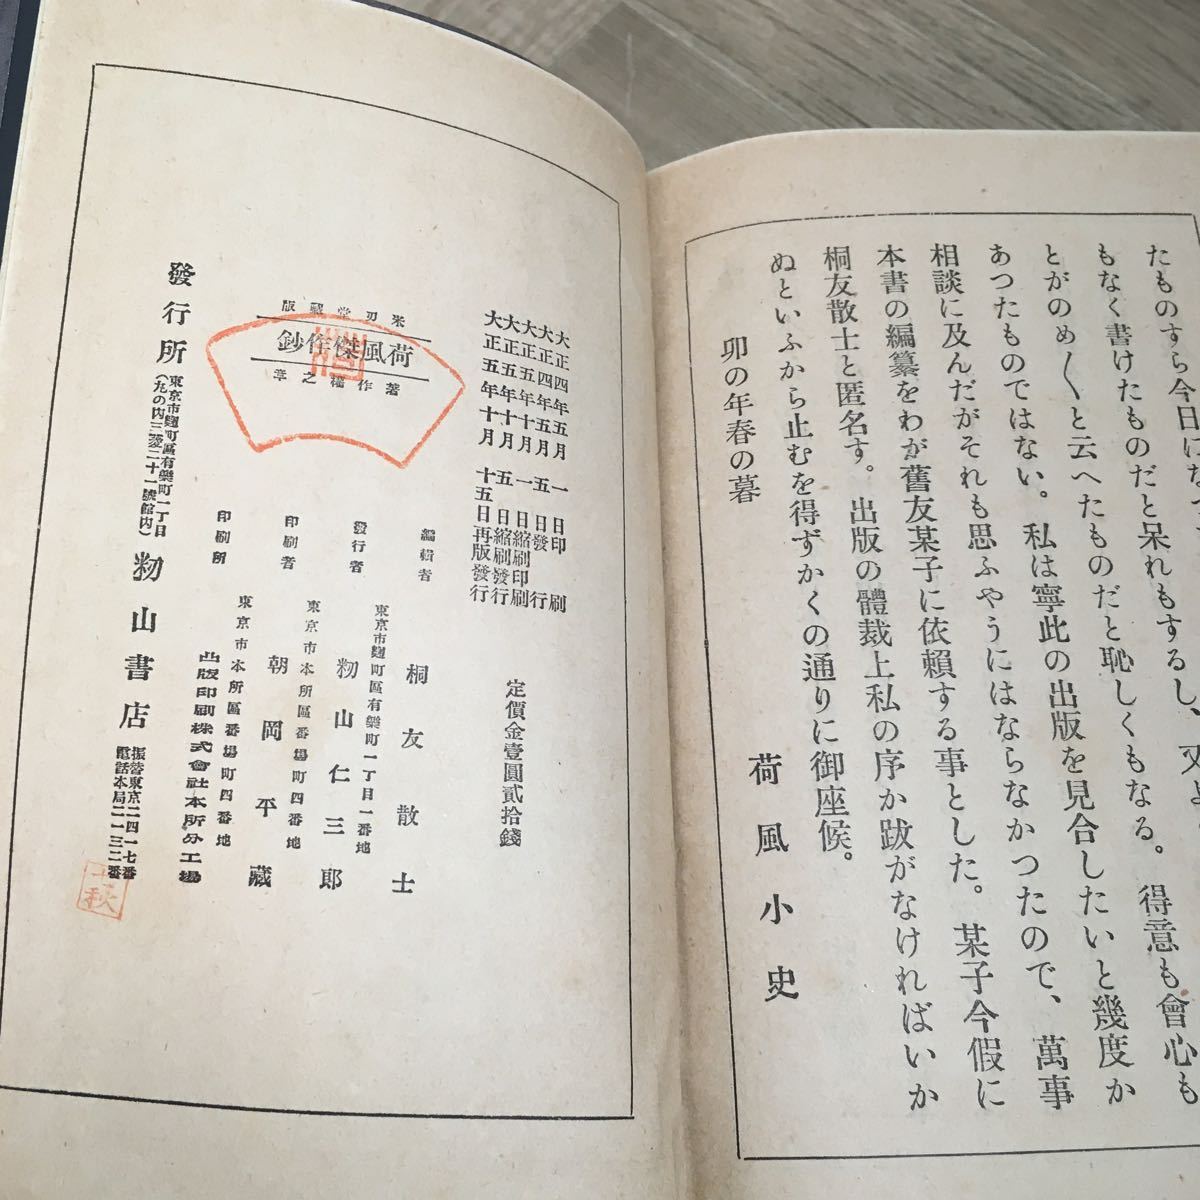 たものすら今日にな
もなく書けたものだと呆れもするし、又よ
とがのめ〱と云へたものだと恥しくもなる。得意も會心も
あつたものではない。私は寧此の出版を見合したいと幾度か
相談に及んだがそれも思ふやうにはならなかつたので、萬事
本書の編纂をわが舊友某子に依賴する事とした。某子今假に
桐友散士と匿名す。出版の體裁上私の序か跋がなければいか
ぬといふから止むを得ずかくの通りに御座候。
卯の年春の暮
荷風小史
大正四年五月一日印刷
大正四年五月五日發行
大正五年十月一日縮刷印刷
大正五年十月五日縮刷發行
大正五年十月十五日再版發行
定價金壹圓貳拾錢
米刃堂藏版
荷風傑作鈔
著作權之章
編輯者
桐友散士
發行者
東京市麴町區有樂町一丁目一番地
籾山仁三郎
印刷者
東京市本所區番場町四番地
朝岡平藏
印刷所
東京市本所區番場町四番地
凸版印刷株式會社本所分工場
發行所
東京市麴町區有樂町一丁目
(丸の内三菱二十一號館内)
籾山書店
振替東京二四一七番
電話本局二一三二番